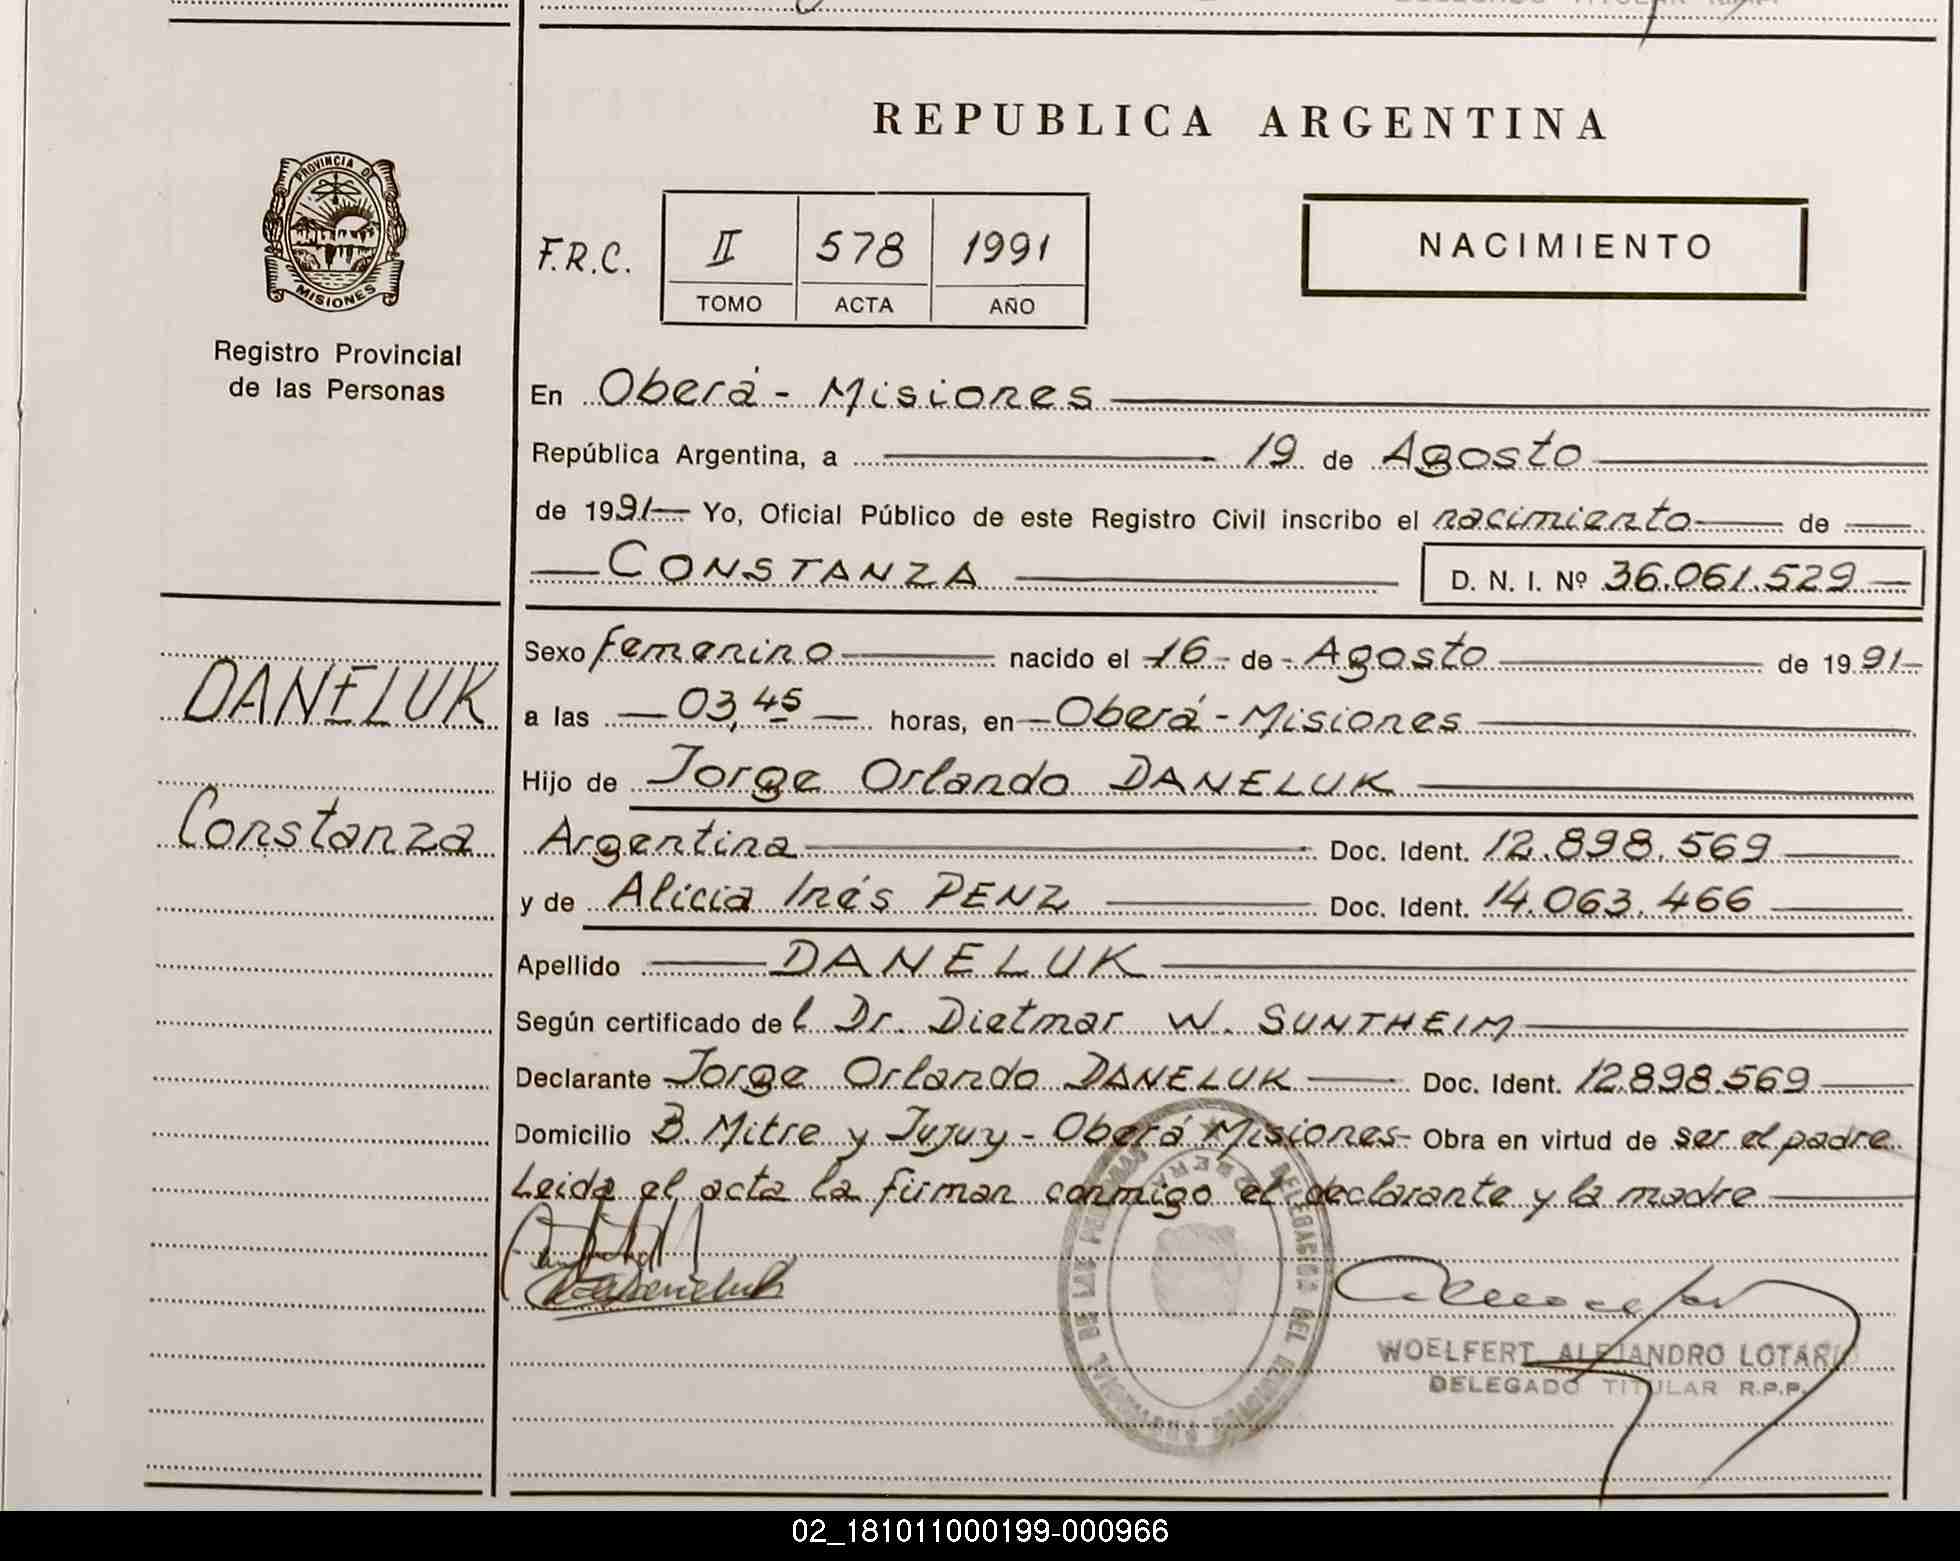 REPUBLICA ARGENTINA
PROVINCIA DE
MISIONES
Registro Provincial
de las Personas
F.R.C.
II 578 1991
TOMO ACTA AÑO
NACIMIENTO
En Oberá - Misiones
República Argentina, a 19 de Agosto
de 1991 Yo, Oficial Público de este Registro Civil inscribo el nacimiento de
CONSTANZA D. N. I. Nº 36.061.529
DANELUK
Constanza
Sexo femenino nacido el 16 de Agosto de 1991
a las 03,45 horas, en Oberá - Misiones
Hijo de Jorge Orlando DANELUK
Argentina Doc. Ident. 12.898.569
y de Alicia Inés PENZ Doc. Ident. 14.063.466
Apellido DANELUK
Según certificado del Dr. Dietmar W. SUNTHEIM
Declarante Jorge Orlando DANELUK Doc. Ident. 12.898.569
Domicilio B. Mitre y Jujuy - Oberá Misiones - Obra en virtud de ser el padre
Leida el acta la firman conmigo el declarante y la madre
WOELFERT ALEJANDRO LOTARIO
DELEGADO TITULAR R.P.P.
02_181011000199-000966